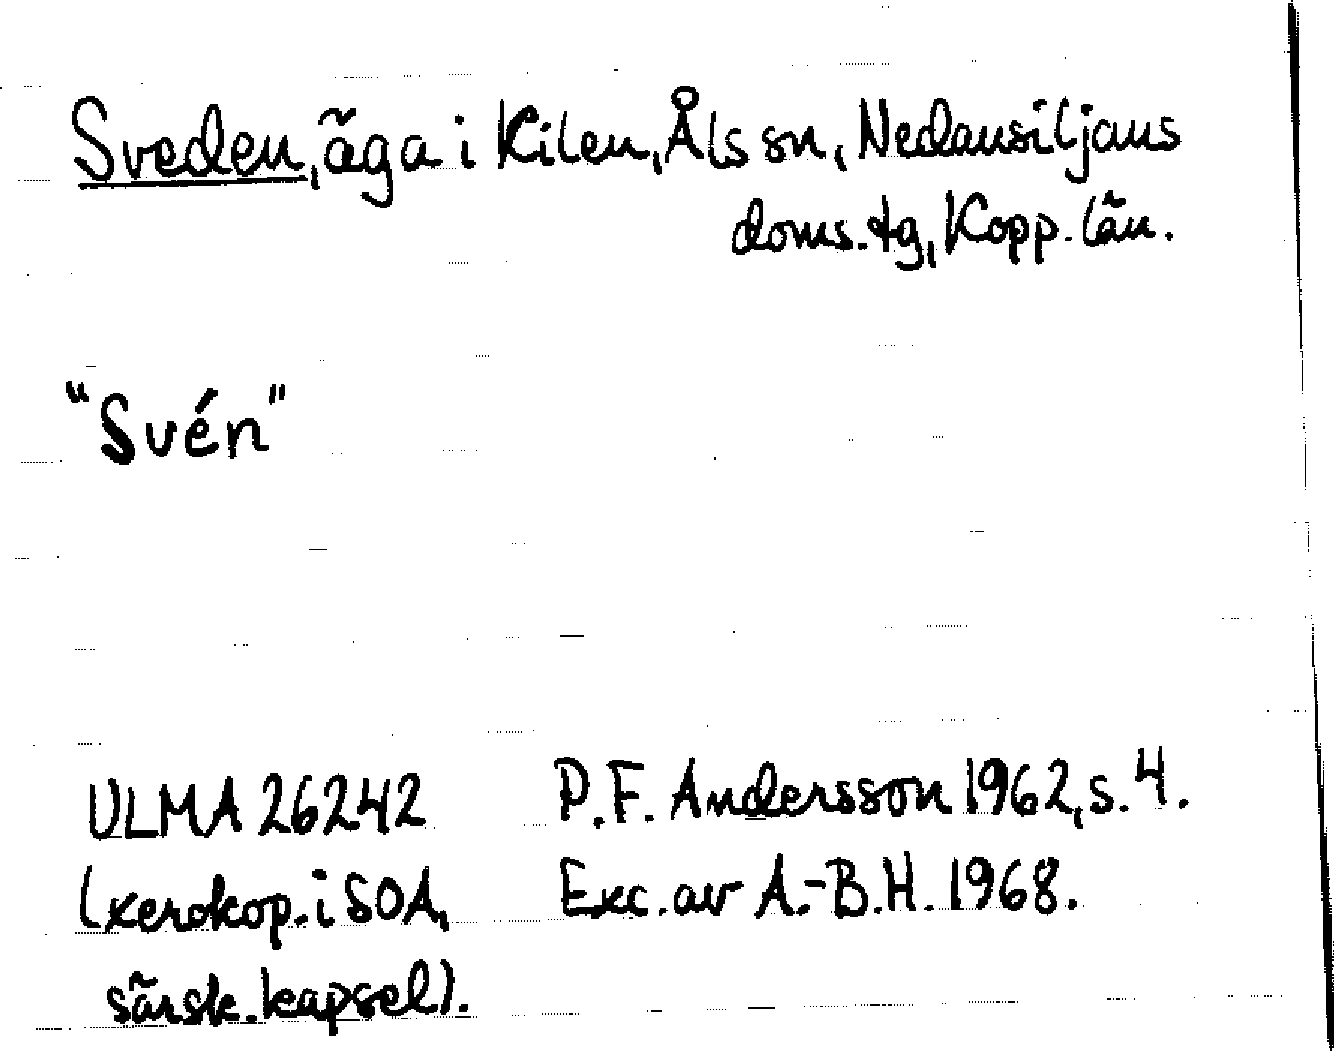 Sveden, äga i Kilen, Åls sn, Nedansiljans
doms. tg, Kopp. län.
"Svén"
ULMA 26242 P.F. Andersson 1962, s. 4.
(xerokop. i SOA, Exc. av A.-B.H. 1968.
särsk. kapsel).